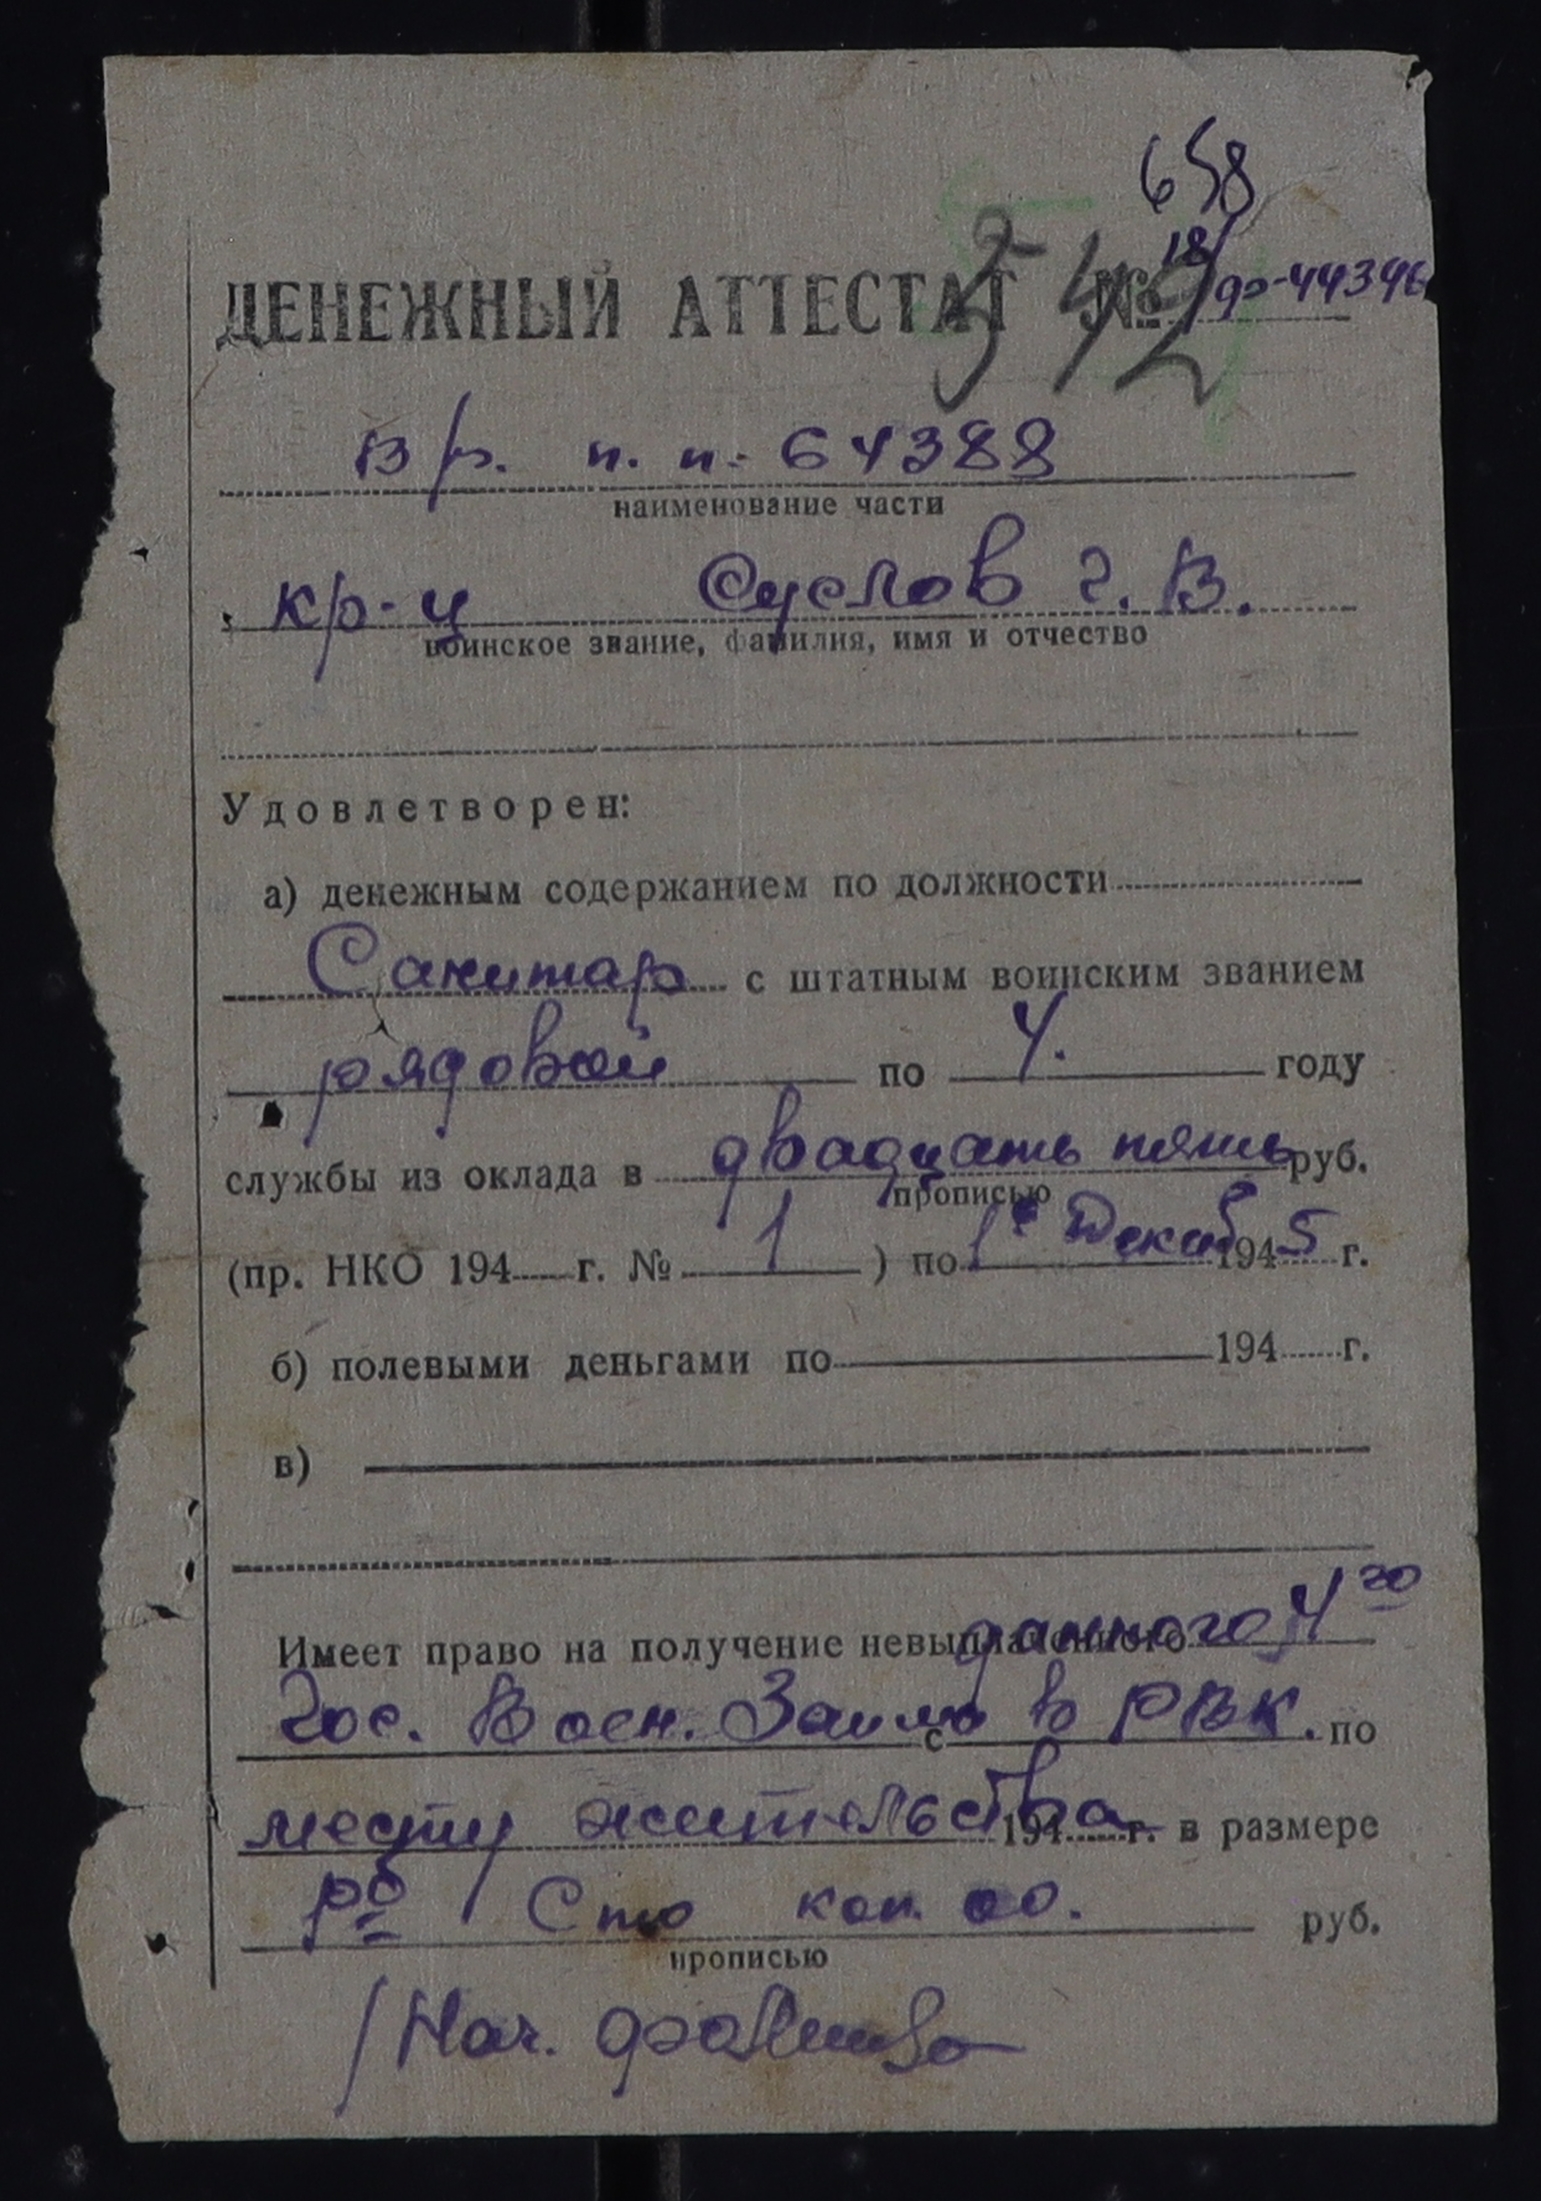 658
542
18/
ДЕНЕЖНЫЙ АТТЕСТАТ №
В/ч. п. п. 64388
наименование части
кр-ц Суслов Г. В.
воинское звание, фамилия, имя и отчество
Удовлетворен:
а) денежным содержанием по должности
Санитар с штатным воинским званием
рядовой по 4. году
службы из оклада в двадцать пять руб.
прописью
(пр. НКО 194 г. № 1 ) по 1е Декаб 1945 г.
б) полевыми деньгами по 194 г.
в)
Имеет право на получение невыплаченного данного 4го
Гос. Воен. Займа в с РВК. по
месту жительства 194 г. в размере
рб Сто коп. 00. руб.
прописью
/Нач.